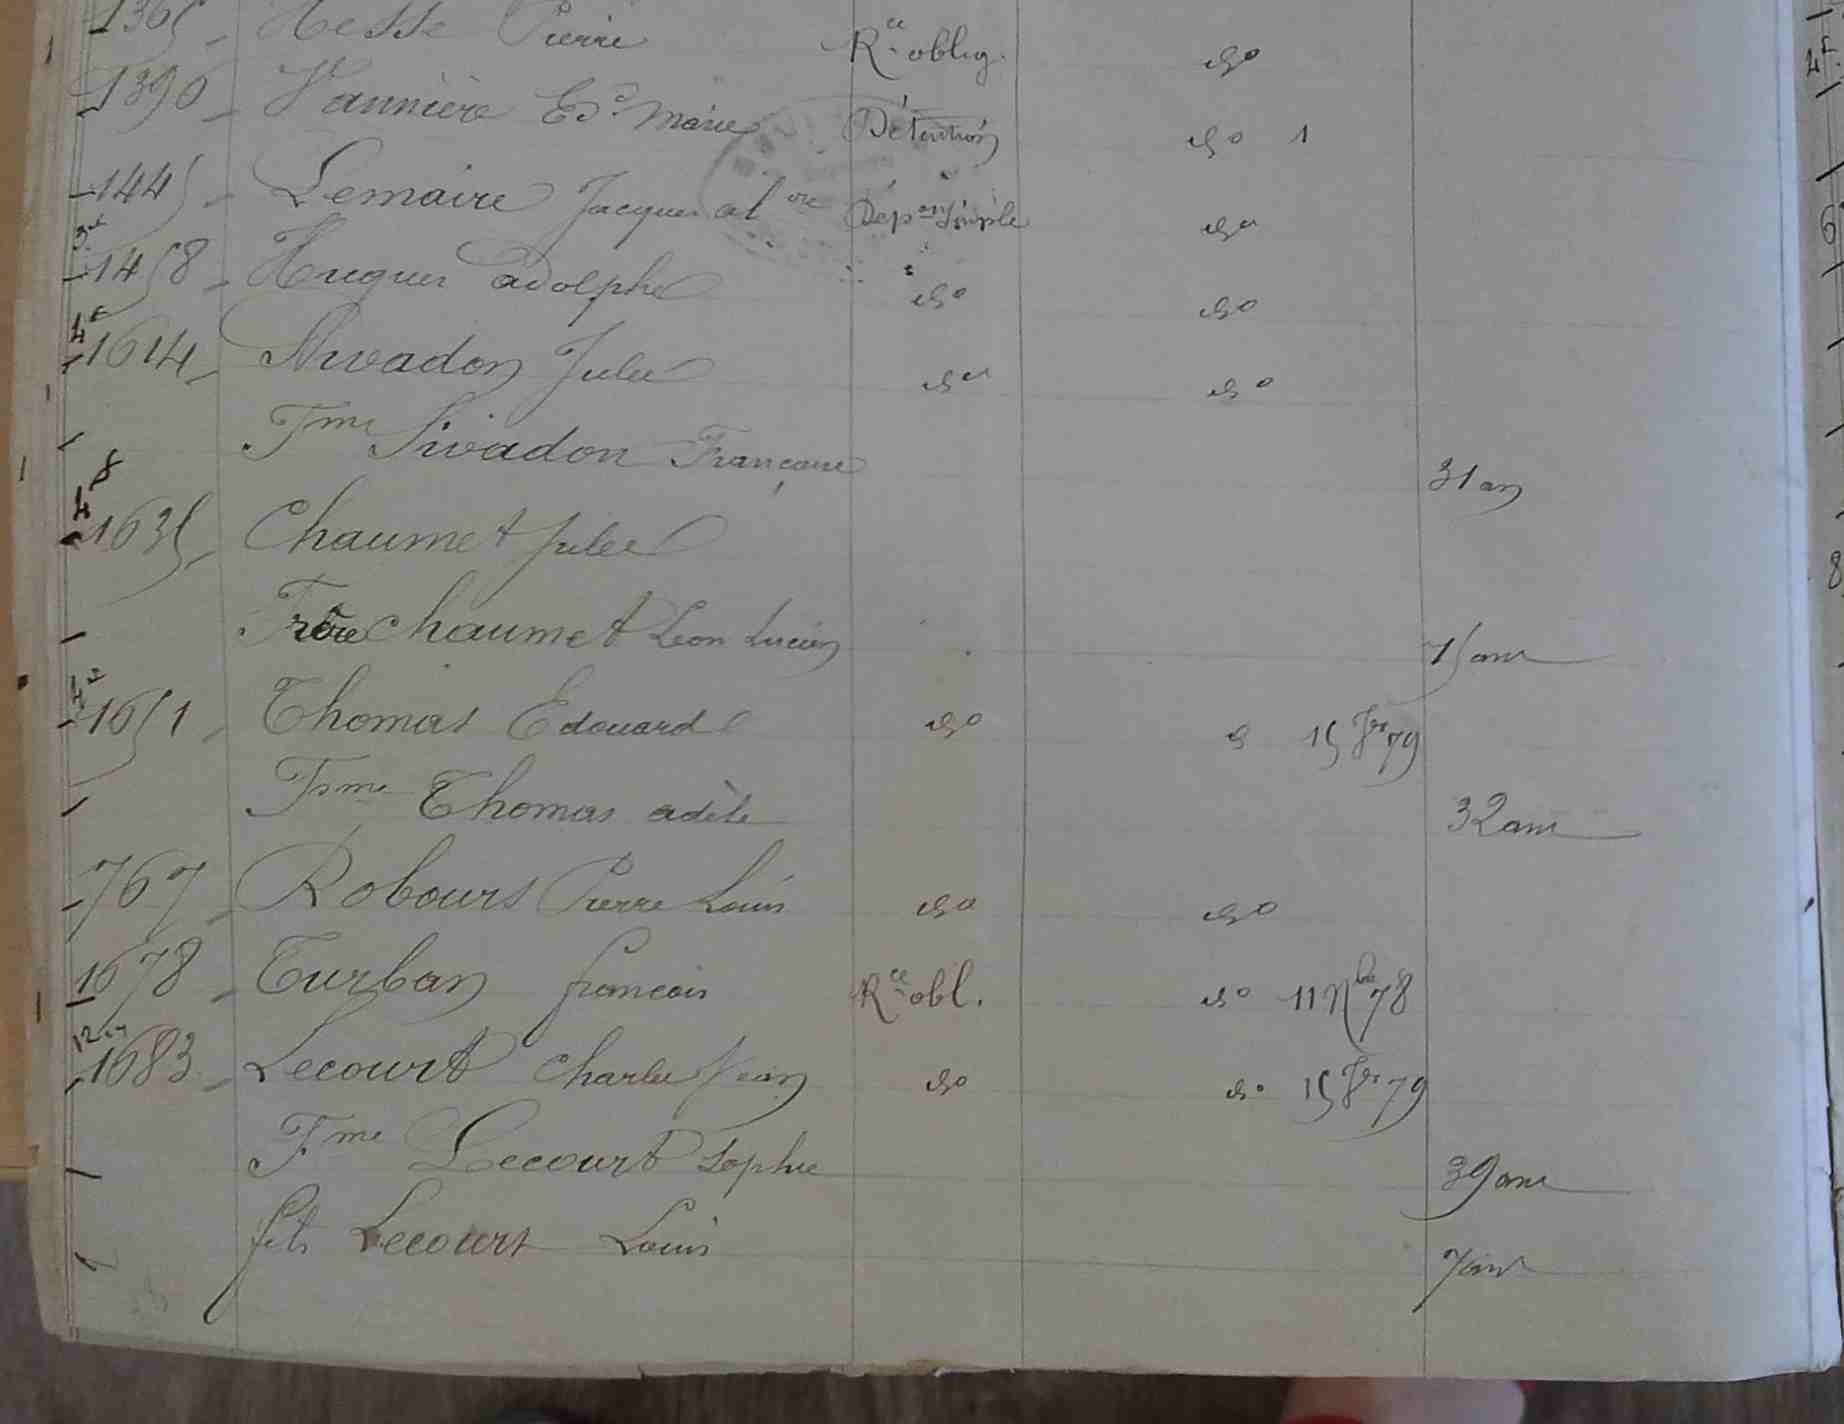 1365 - Hesse Pierre Rce oblig. do
1390 - Vannière Ed. Marie Détention do 1
1445 - Lemaire Jacques al vre Dépon Simple do
1458 - Hugues adolphe do do
4e
1614 - Sivadon Jules do do
Fme Sivadon Françoise 31 ans
8
4
1635 - Chaumet Jules
Frère Chaumet Leon Lucien 15 ans
1651 - Thomas Edouard do d 15 Jer 79
Fme Thomas adèle 32 ans
767 - Robours Pierre Louis do do
1678 - Turban francois Rce obl. do 11 Nbe 78
1683 - Lecourt Charles Jean do do 15 Jer 79
Fme Lecourt Sophie 39 ans
fils Lecourt Louis 7 ans